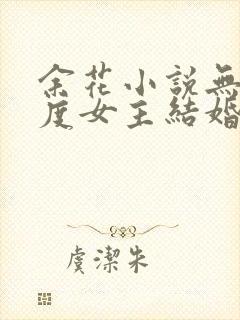 余花小説無
度女主結婚
虞潔朱